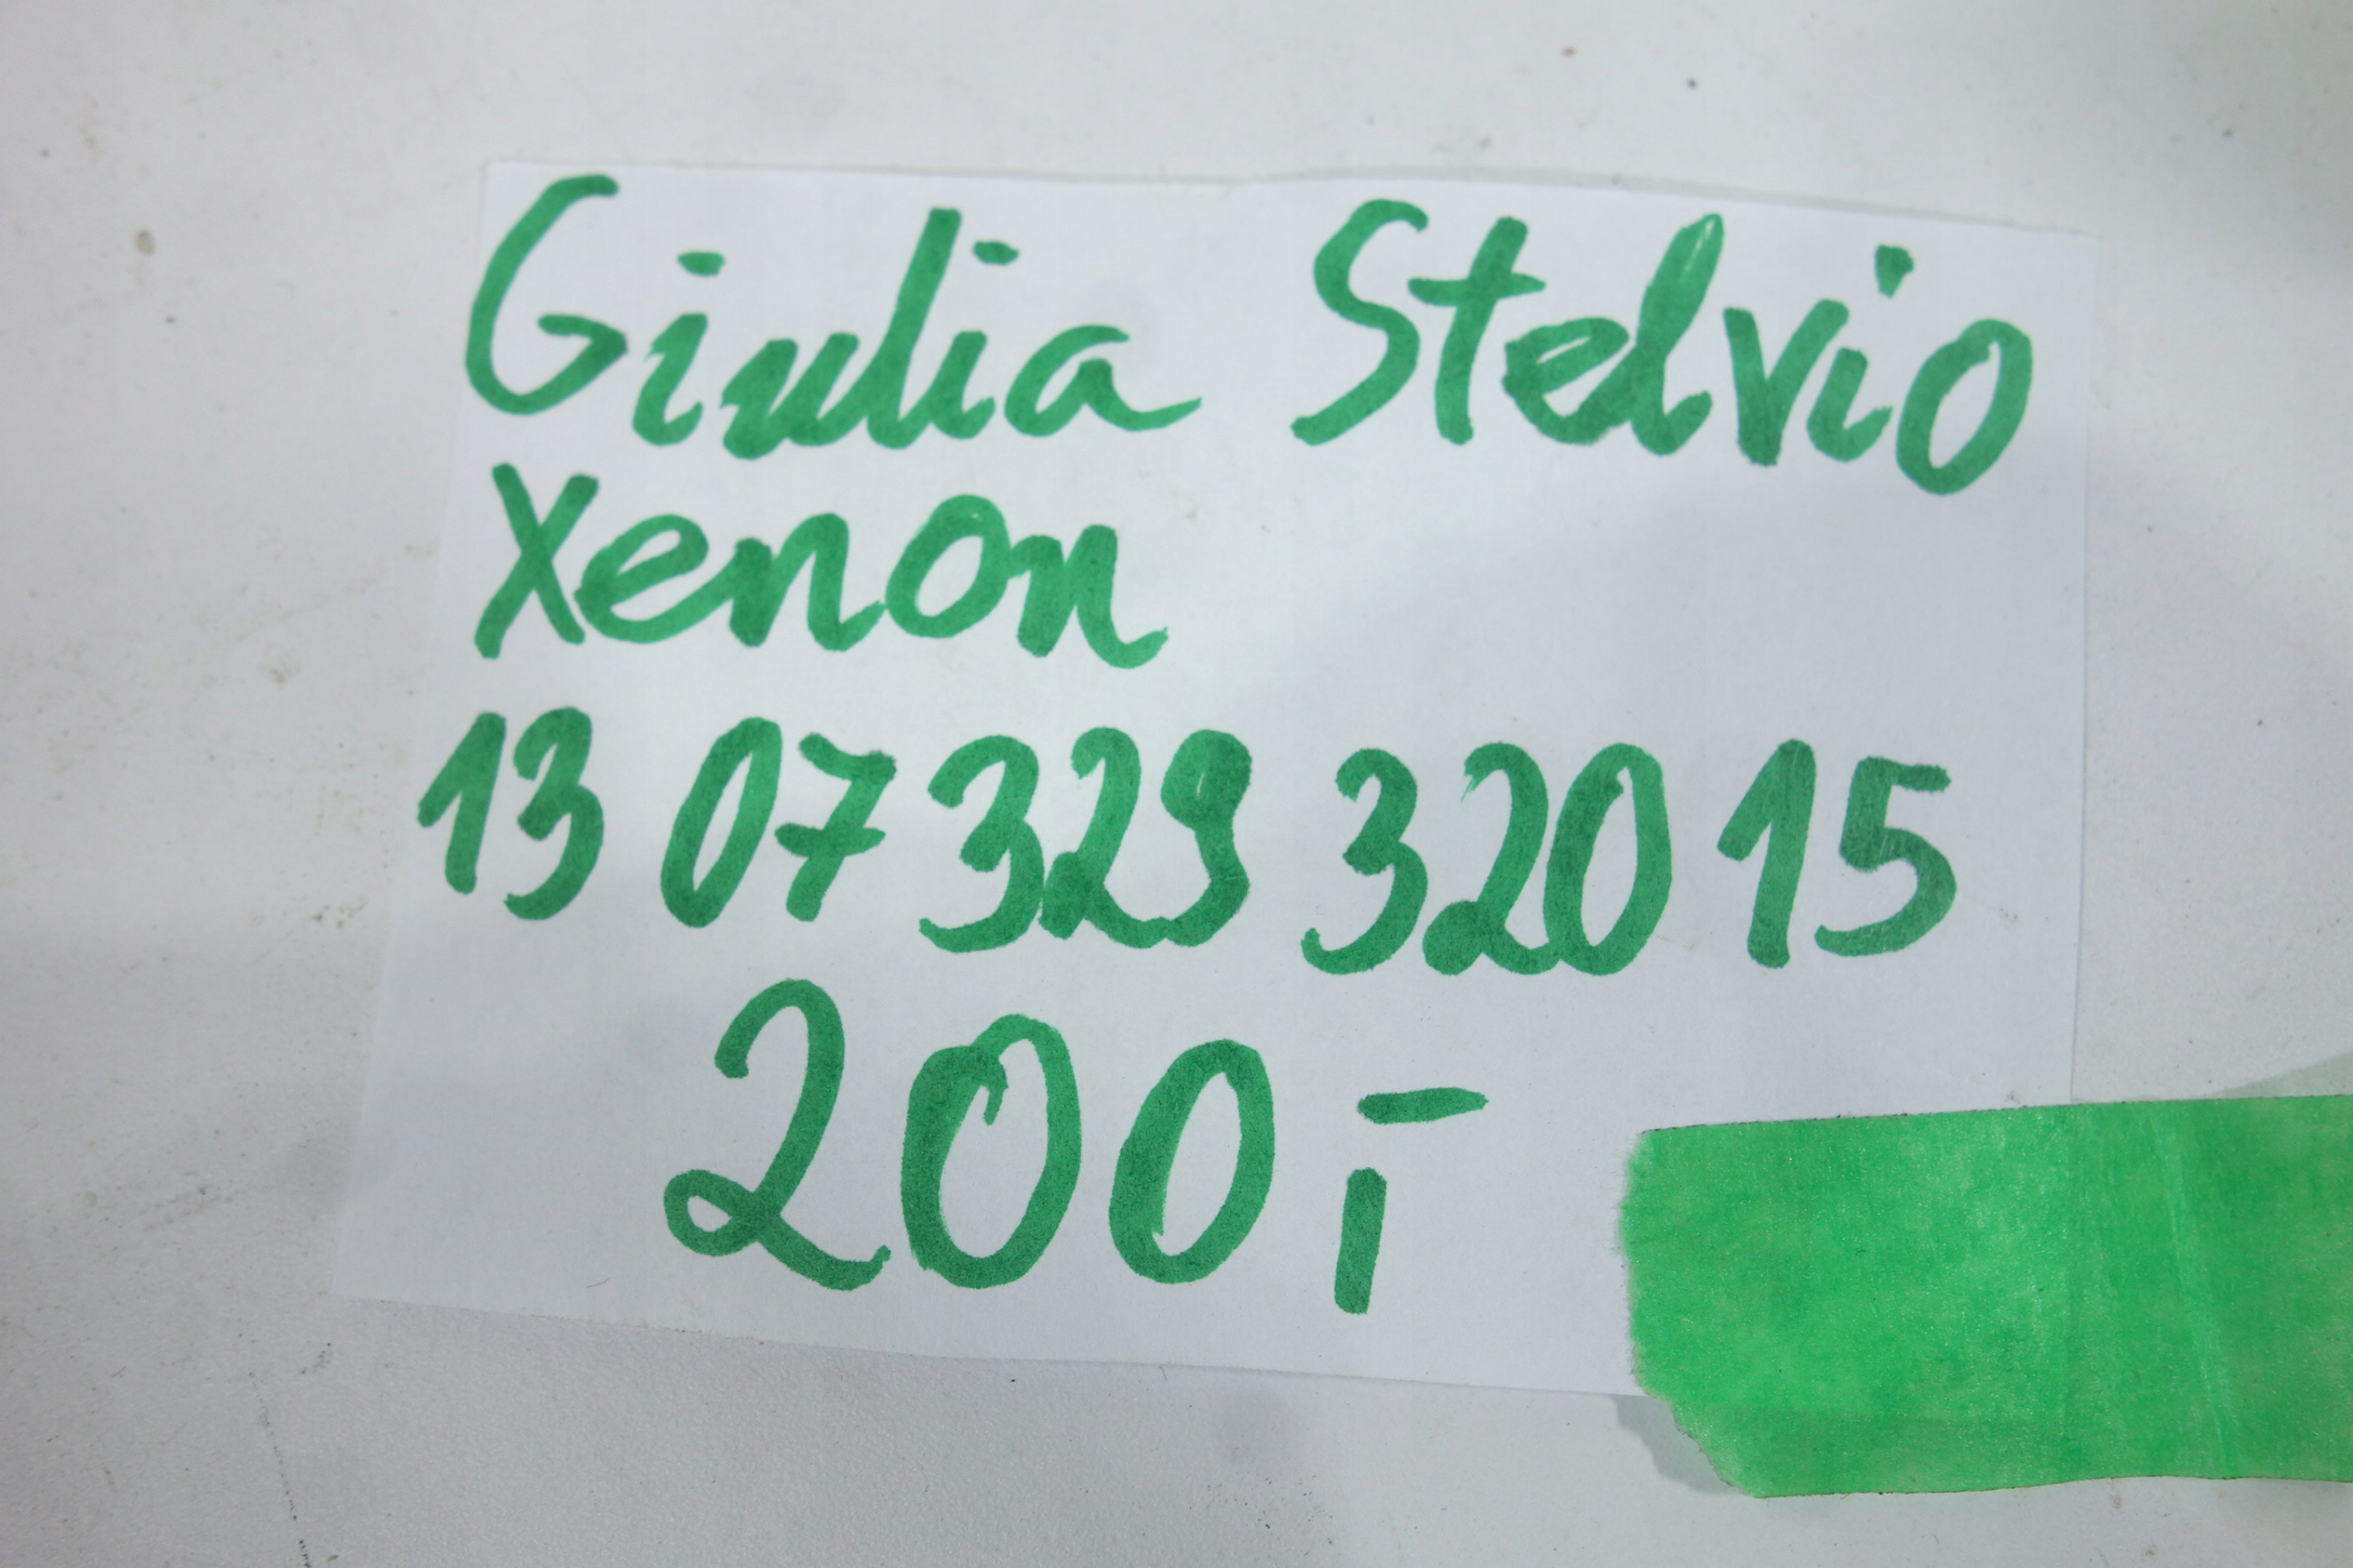 Giulia Stelvio
Xenon
13 07 329 320 15
200,-